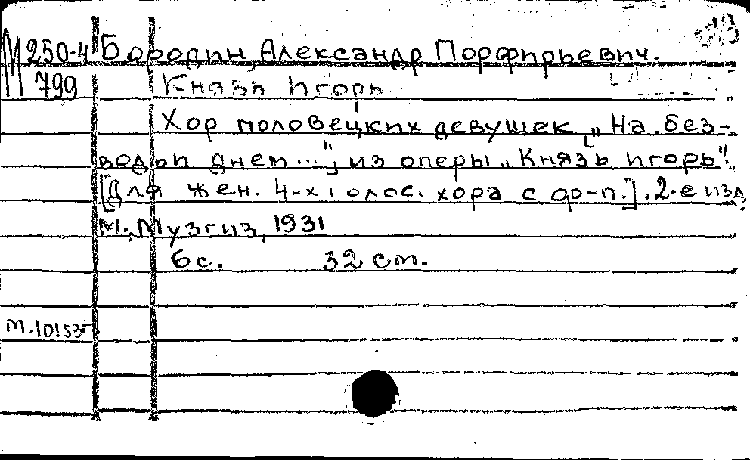 М 250-4 Бородин, Александр Порфирьевич.
799 Князь Игорь
Хор половецких девушек „На без-
водьи днем..."; из оперы „Князь Игорь".
[Для жен. 4-х голос. хора с ф-п.]. 2-е изд.
М., Музгиз, 1931
6 с. 32 cm.
М.10153